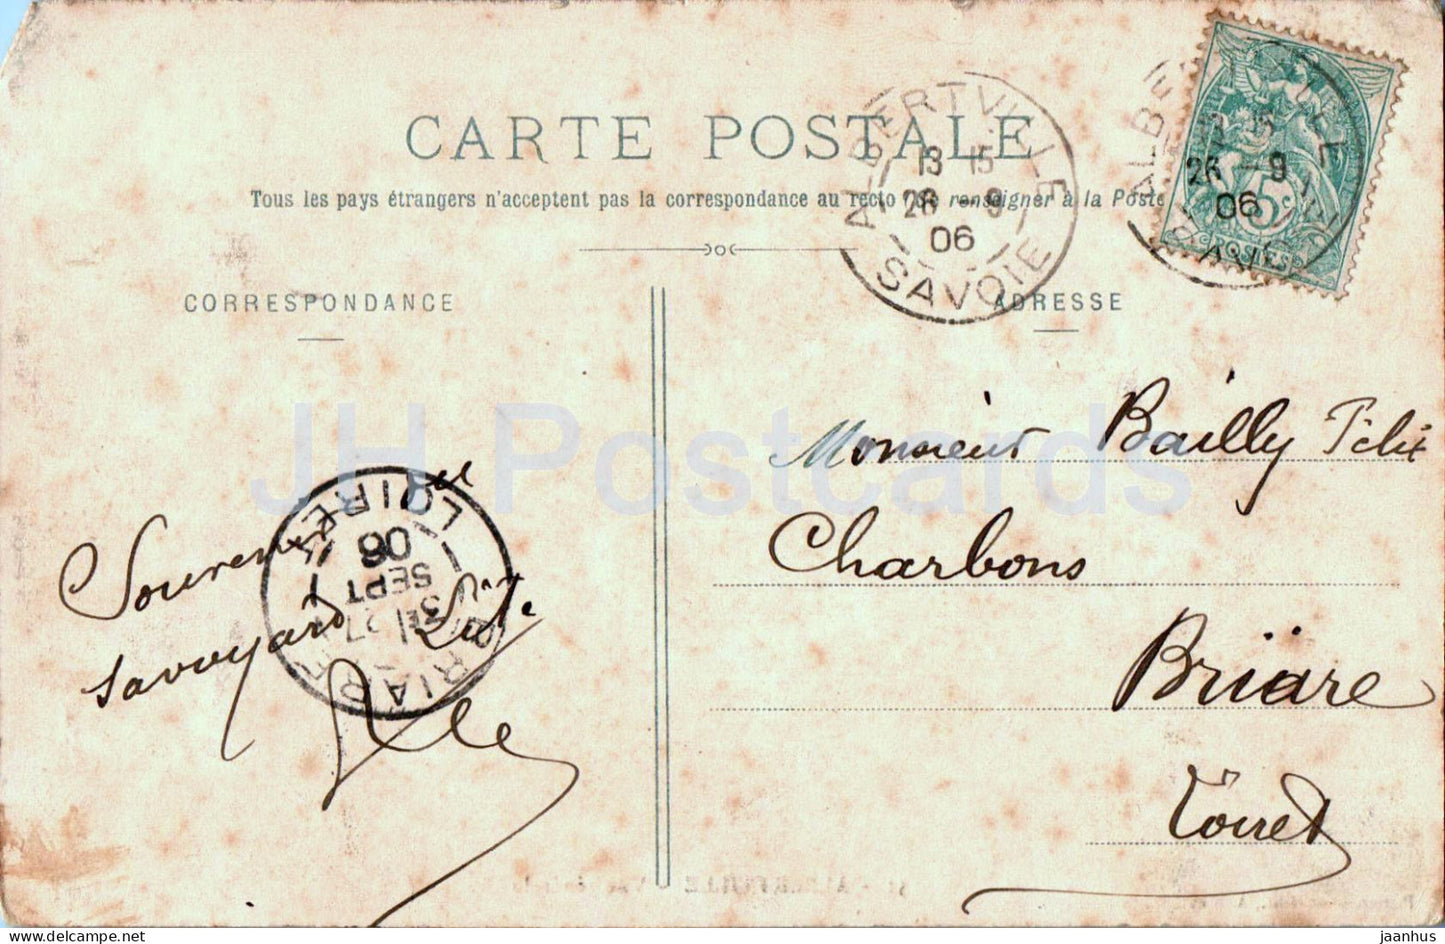 CARTE POSTALE
Tous les pays étrangers n'acceptent pas la correspondance au recto (Se renseigner à la Poste
ALBERTVILLE
13 15
26 - 9
06
SAVOIE
26 - 9
06
5c
POSTES
CORRESPONDANCE
ADRESSE
JH Postcards
Souvenir
savoyard
BRIARE
3E 27
SEPT
06
LOIRET
Monsieur Bailly Félix
Charbons
Briare
Loiret
ALBERTVILLE
jaanhus